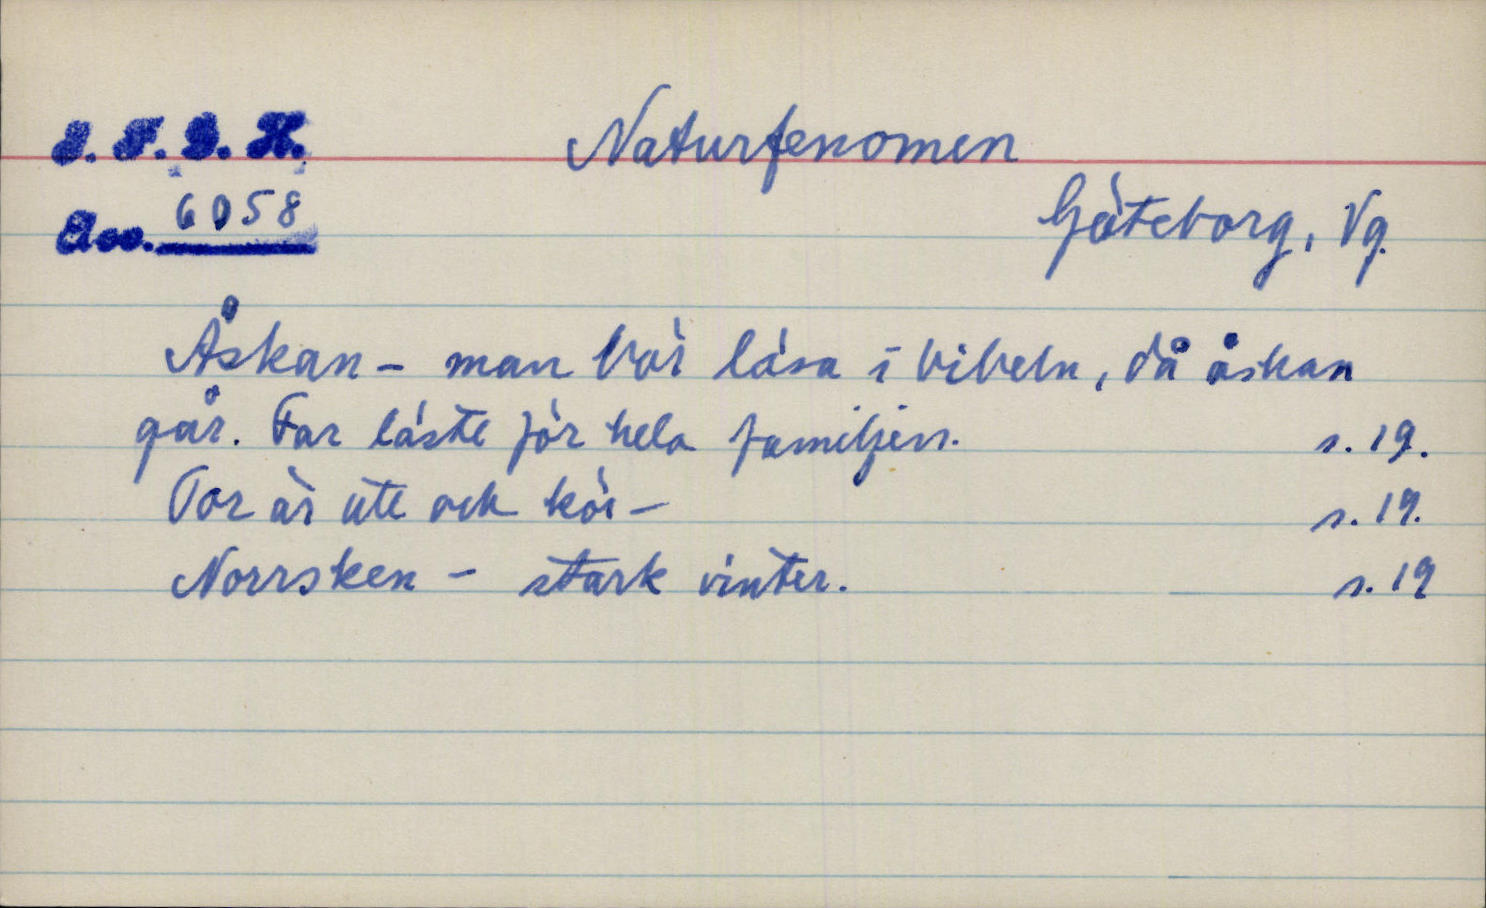 I. F. G. H.
Naturfenomen
Acc. 6058
Göteborg, Vg.
Åskan - man bör läsa i bibeln, då åskan
går. Far läste för hela familjen. s. 19.
Tor är ute och kör - s. 19.
Norrsken - stark vinter. s. 19